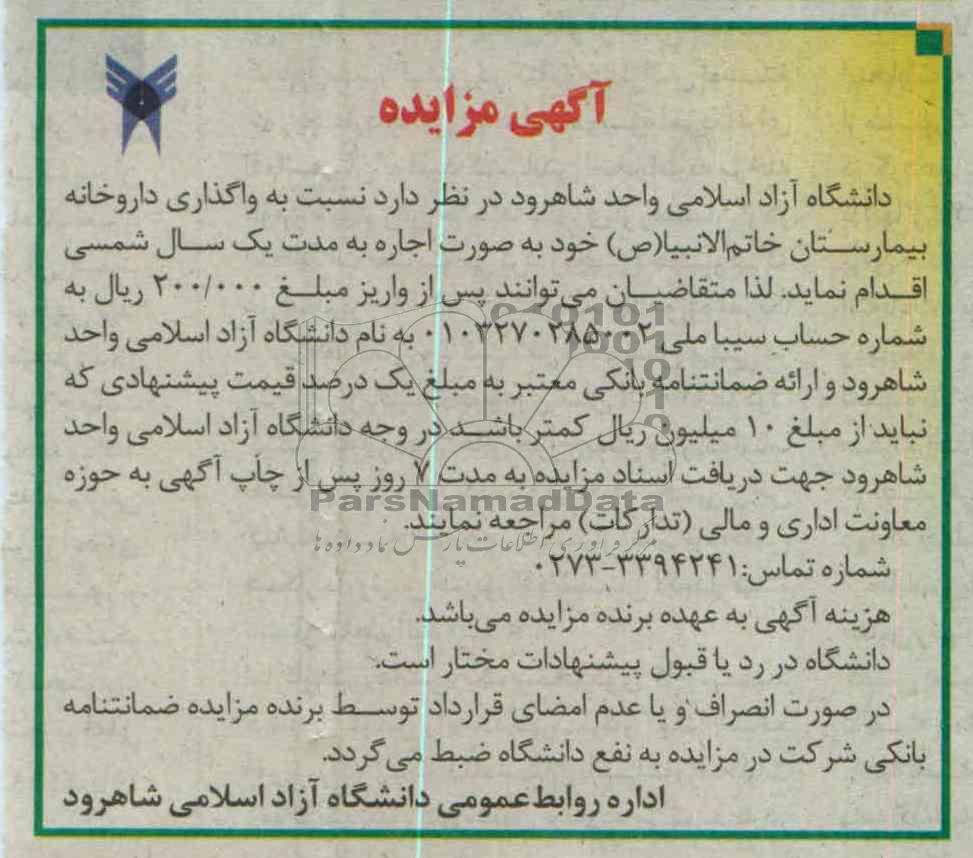 آگهی مزایده
دانشگاه آزاد اسلامی واحد شاهرود در نظر دارد نسبت به واگذاری داروخانه
بیمارستان خاتم‌الانبیا(ص) خود به صورت اجاره به مدت یک سال شمسی
اقدام نماید. لذا متقاضیان می‌توانند پس از واریز مبلغ ۲۰۰/۰۰۰ ریال به
شماره حساب سیبا ملی ۰۱۰۳۲۷۰۲۸۵۰۰۲ به نام دانشگاه آزاد اسلامی واحد
شاهرود و ارائه ضمانتنامه بانکی معتبر به مبلغ یک درصد قیمت پیشنهادی که
نباید از مبلغ ۱۰ میلیون ریال کمتر باشد در وجه دانشگاه آزاد اسلامی واحد
شاهرود جهت دریافت اسناد مزایده به مدت ۷ روز پس از چاپ آگهی به حوزه
ParsNamadData
معاونت اداری و مالی (تدارکات) مراجعه نمایند.
مرکز فرآوری اطلاعات پارس نماد داده ها
شماره تماس: ۳۳۹۴۲۴۱-۰۲۷۳
هزینه آگهی به عهده برنده مزایده می‌باشد.
دانشگاه در رد یا قبول پیشنهادات مختار است.
در صورت انصراف و یا عدم امضای قرارداد توسط برنده مزایده ضمانتنامه
بانکی شرکت در مزایده به نفع دانشگاه ضبط می‌گردد.
اداره روابط عمومی دانشگاه آزاد اسلامی شاهرود